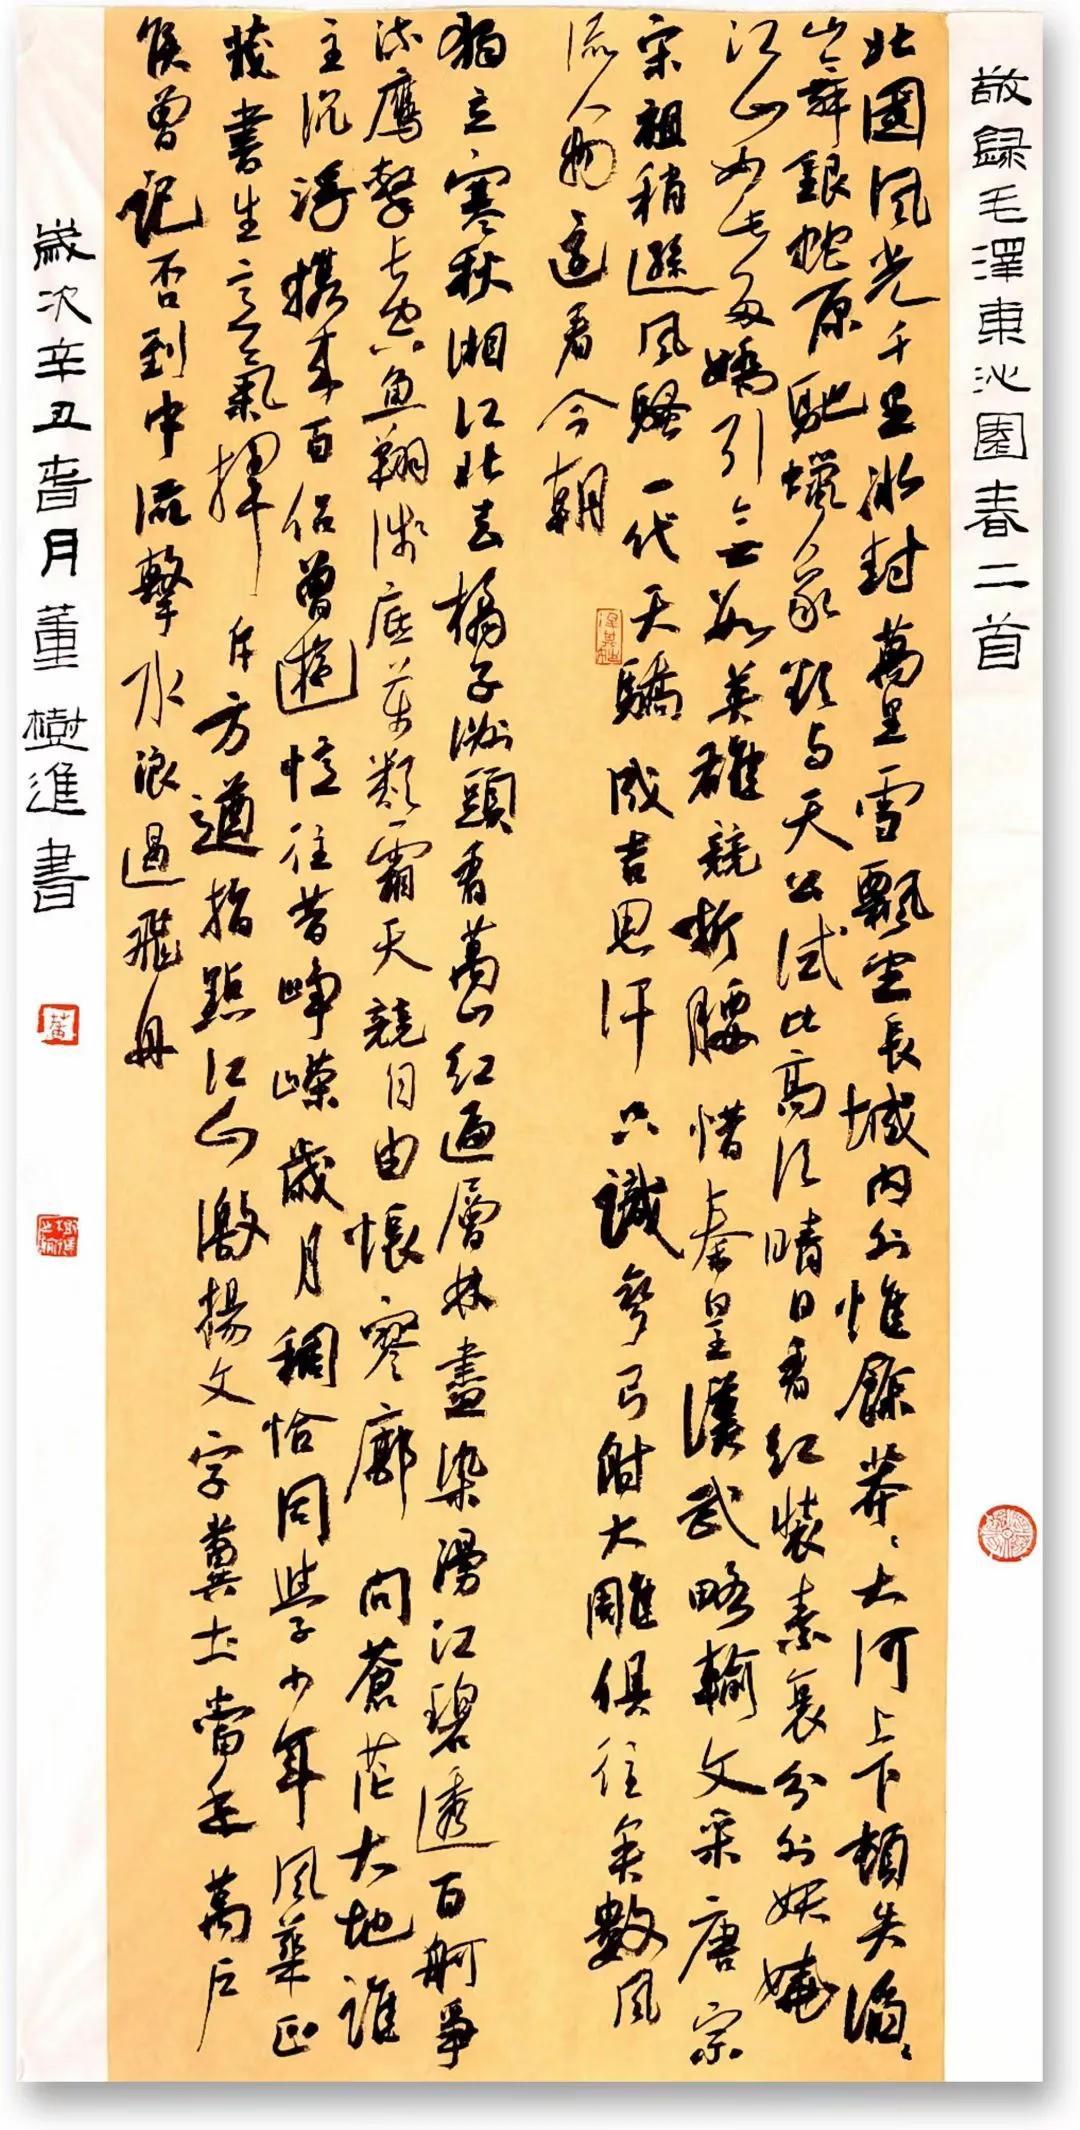 敬録毛澤東沁園春二首
北國風光千里冰封萬里雪飄望長城内外惟餘莽々大河上下頓失滔々
山舞銀蛇原馳蠟象欲与天公試比高須晴日看紅裝素裹分外妖嬈
江山如此多嬌引無數英雄競折腰惜秦皇漢武略輸文采唐宗
宋祖稍遜風騷一代天驕成吉思汗只識彎弓射大雕俱往矣數風
流人物還看今朝
獨立寒秋湘江北去橘子洲頭看萬山紅遍層林盡染漫江碧透百舸爭
流鷹擊長空魚翔淺底萬類霜天競自由悵寥廓問蒼茫大地誰
主沉浮攜來百侶曾遊憶往昔崢嶸歲月稠恰同學少年風華正
茂書生意氣揮斥方遒指點江山激揚文字糞土當年萬户
侯曾記否到中流擊水浪遏飛舟
歲次辛丑春月董樹進書
董